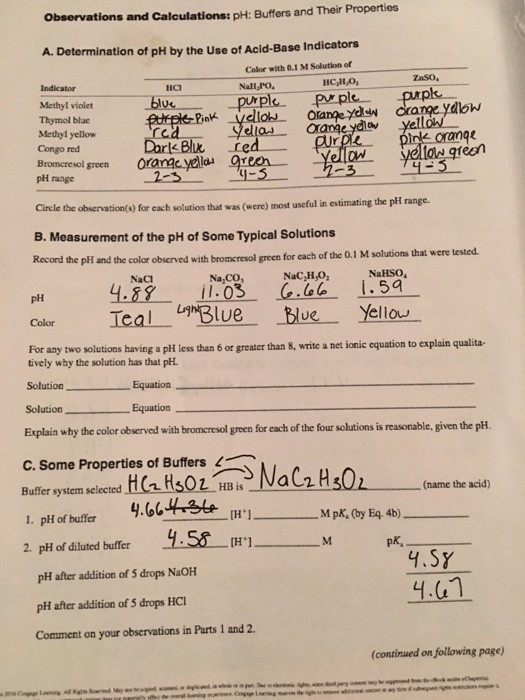 Observations and Calculations: pH: Buffers and Their Properties
A. Determination of pH by the Use of Acid-Base Indicators
Color with 0.1 M Solution of
Indicator HCl NaH₂PO₄ HC₂H₃O₂ ZnSO₄
Methyl violet blue purple purple purple
Thymol blue purple Pink yellow Orange yellow orange yellow
Methyl yellow red Yellow Orange yellow yellow
Congo red Dark Blue red purple pink orange
Bromcresol green Orange yellow green Yellow yellow green
pH range 2-3 4-5 2-3 4-5
Circle the observation(s) for each solution that was (were) most useful in estimating the pH range.
B. Measurement of the pH of Some Typical Solutions
Record the pH and the color observed with bromcresol green for each of the 0.1 M solutions that were tested.
NaCl Na₂CO₃ NaC₂H₃O₂ NaHSO₄
pH 4.88 11.03 6.66 1.59
Color Teal Light Blue Blue Yellow
For any two solutions having a pH less than 6 or greater than 8, write a net ionic equation to explain qualita-
tively why the solution has that pH.
Solution Equation
Solution Equation
Explain why the color observed with bromcresol green for each of the four solutions is reasonable, given the pH.
C. Some Properties of Buffers
Buffer system selected HC2H3O2 HB is NaC2H3O2 (name the acid)
1. pH of buffer 4.66 4.36 [H⁺] M pKₐ (by Eq. 4b)
2. pH of diluted buffer 4.58 [H⁺] M pKₐ
pH after addition of 5 drops NaOH 4.58
pH after addition of 5 drops HCl 4.67
Comment on your observations in Parts 1 and 2.
(continued on following page)